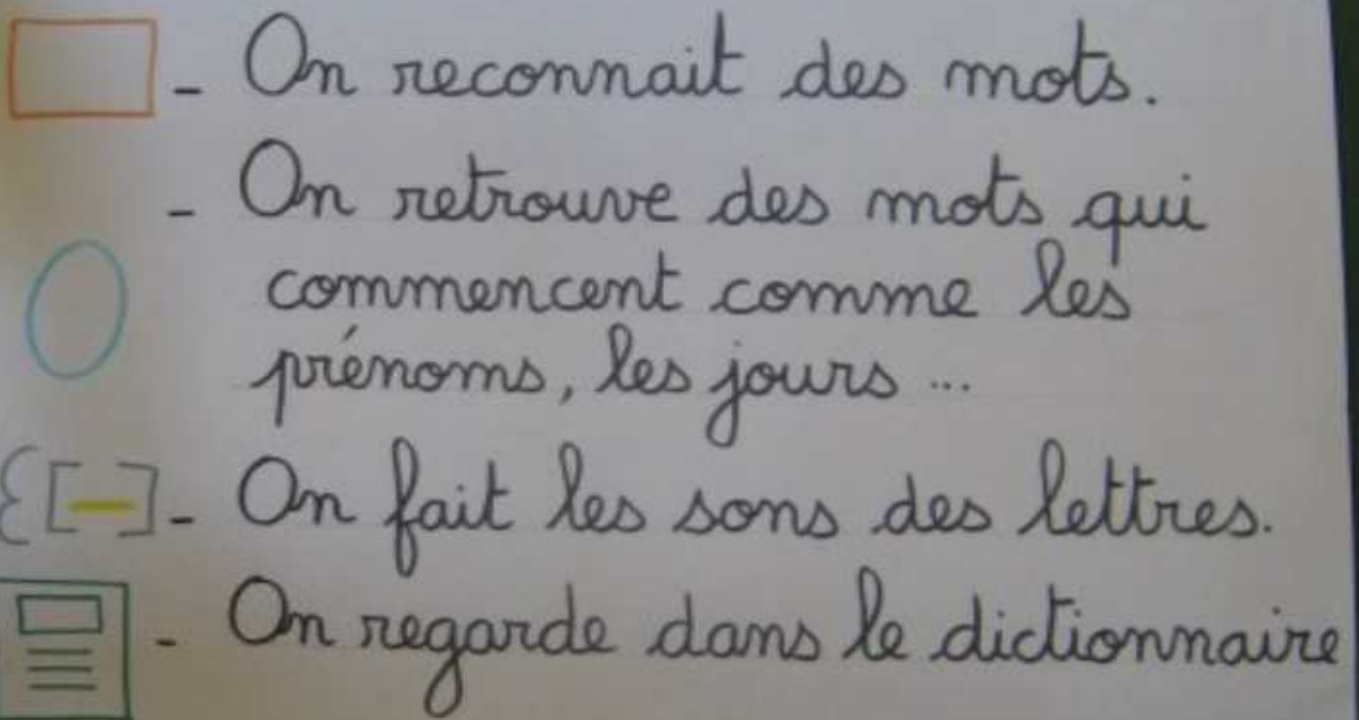 - On reconnait des mots.
- On retrouve des mots qui
commencent comme les
prénoms, les jours ...
- On fait les sons des lettres.
- On regarde dans le dictionnaire